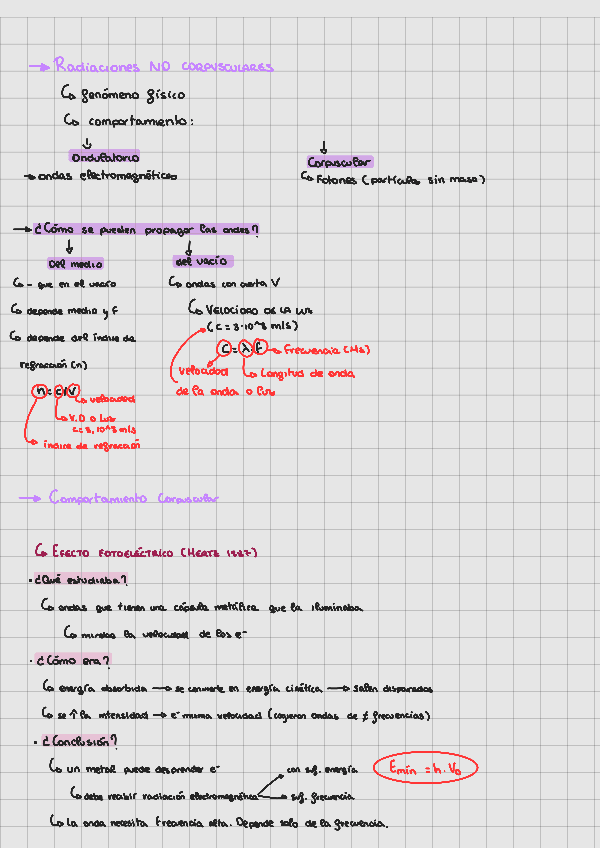 → Radiaciones NO CORPUSCULARES
↳ fenómeno físico
↳ comportamiento:
Ondulatorio
→ ondas electromagnéticas
Corpuscular
↳ Fotones (partículas sin masa)
→ ¿Cómo se pueden propagar las ondas?
Del medio
↳ - que en el vacío
↳ depende medio y f
↳ depende del índice de
refracción (n)
n = c/v
↳ velocidad
↳ V.D o Luz
c = 3.10^8 m/s
índice de refracción
del vacío
↳ ondas con cierta V
↳ VELOCIDAD DE LA LUZ
(c = 3·10^8 m/s)
C = λ · f → Frecuencia (Hz)
↳ Longitud de onda
velocidad
de la onda o luz
→ Comportamiento Corpuscular
↳ EFECTO FOTOELÉCTRICO (HERTZ 1887)
· ¿Qué estudiaba?
↳ ondas que tienen una cápsula metálica que la iluminaba
↳ la velocidad de los e-
· ¿Cómo era?
↳ energía absorbida → se convierte en energía cinética → salen disparados
↳ se ↑ la intensidad → e- misma velocidad (cogieron ondas de ≠ frecuencias)
· ¿Conclusión?
↳ un metal puede desprender e-
↳ debe recibir radiación electromagnética
con suf. energía
suf. frecuencia
Emín = h · V₀
↳ La onda necesita Frecuencia alta. Depende solo de la frecuencia.